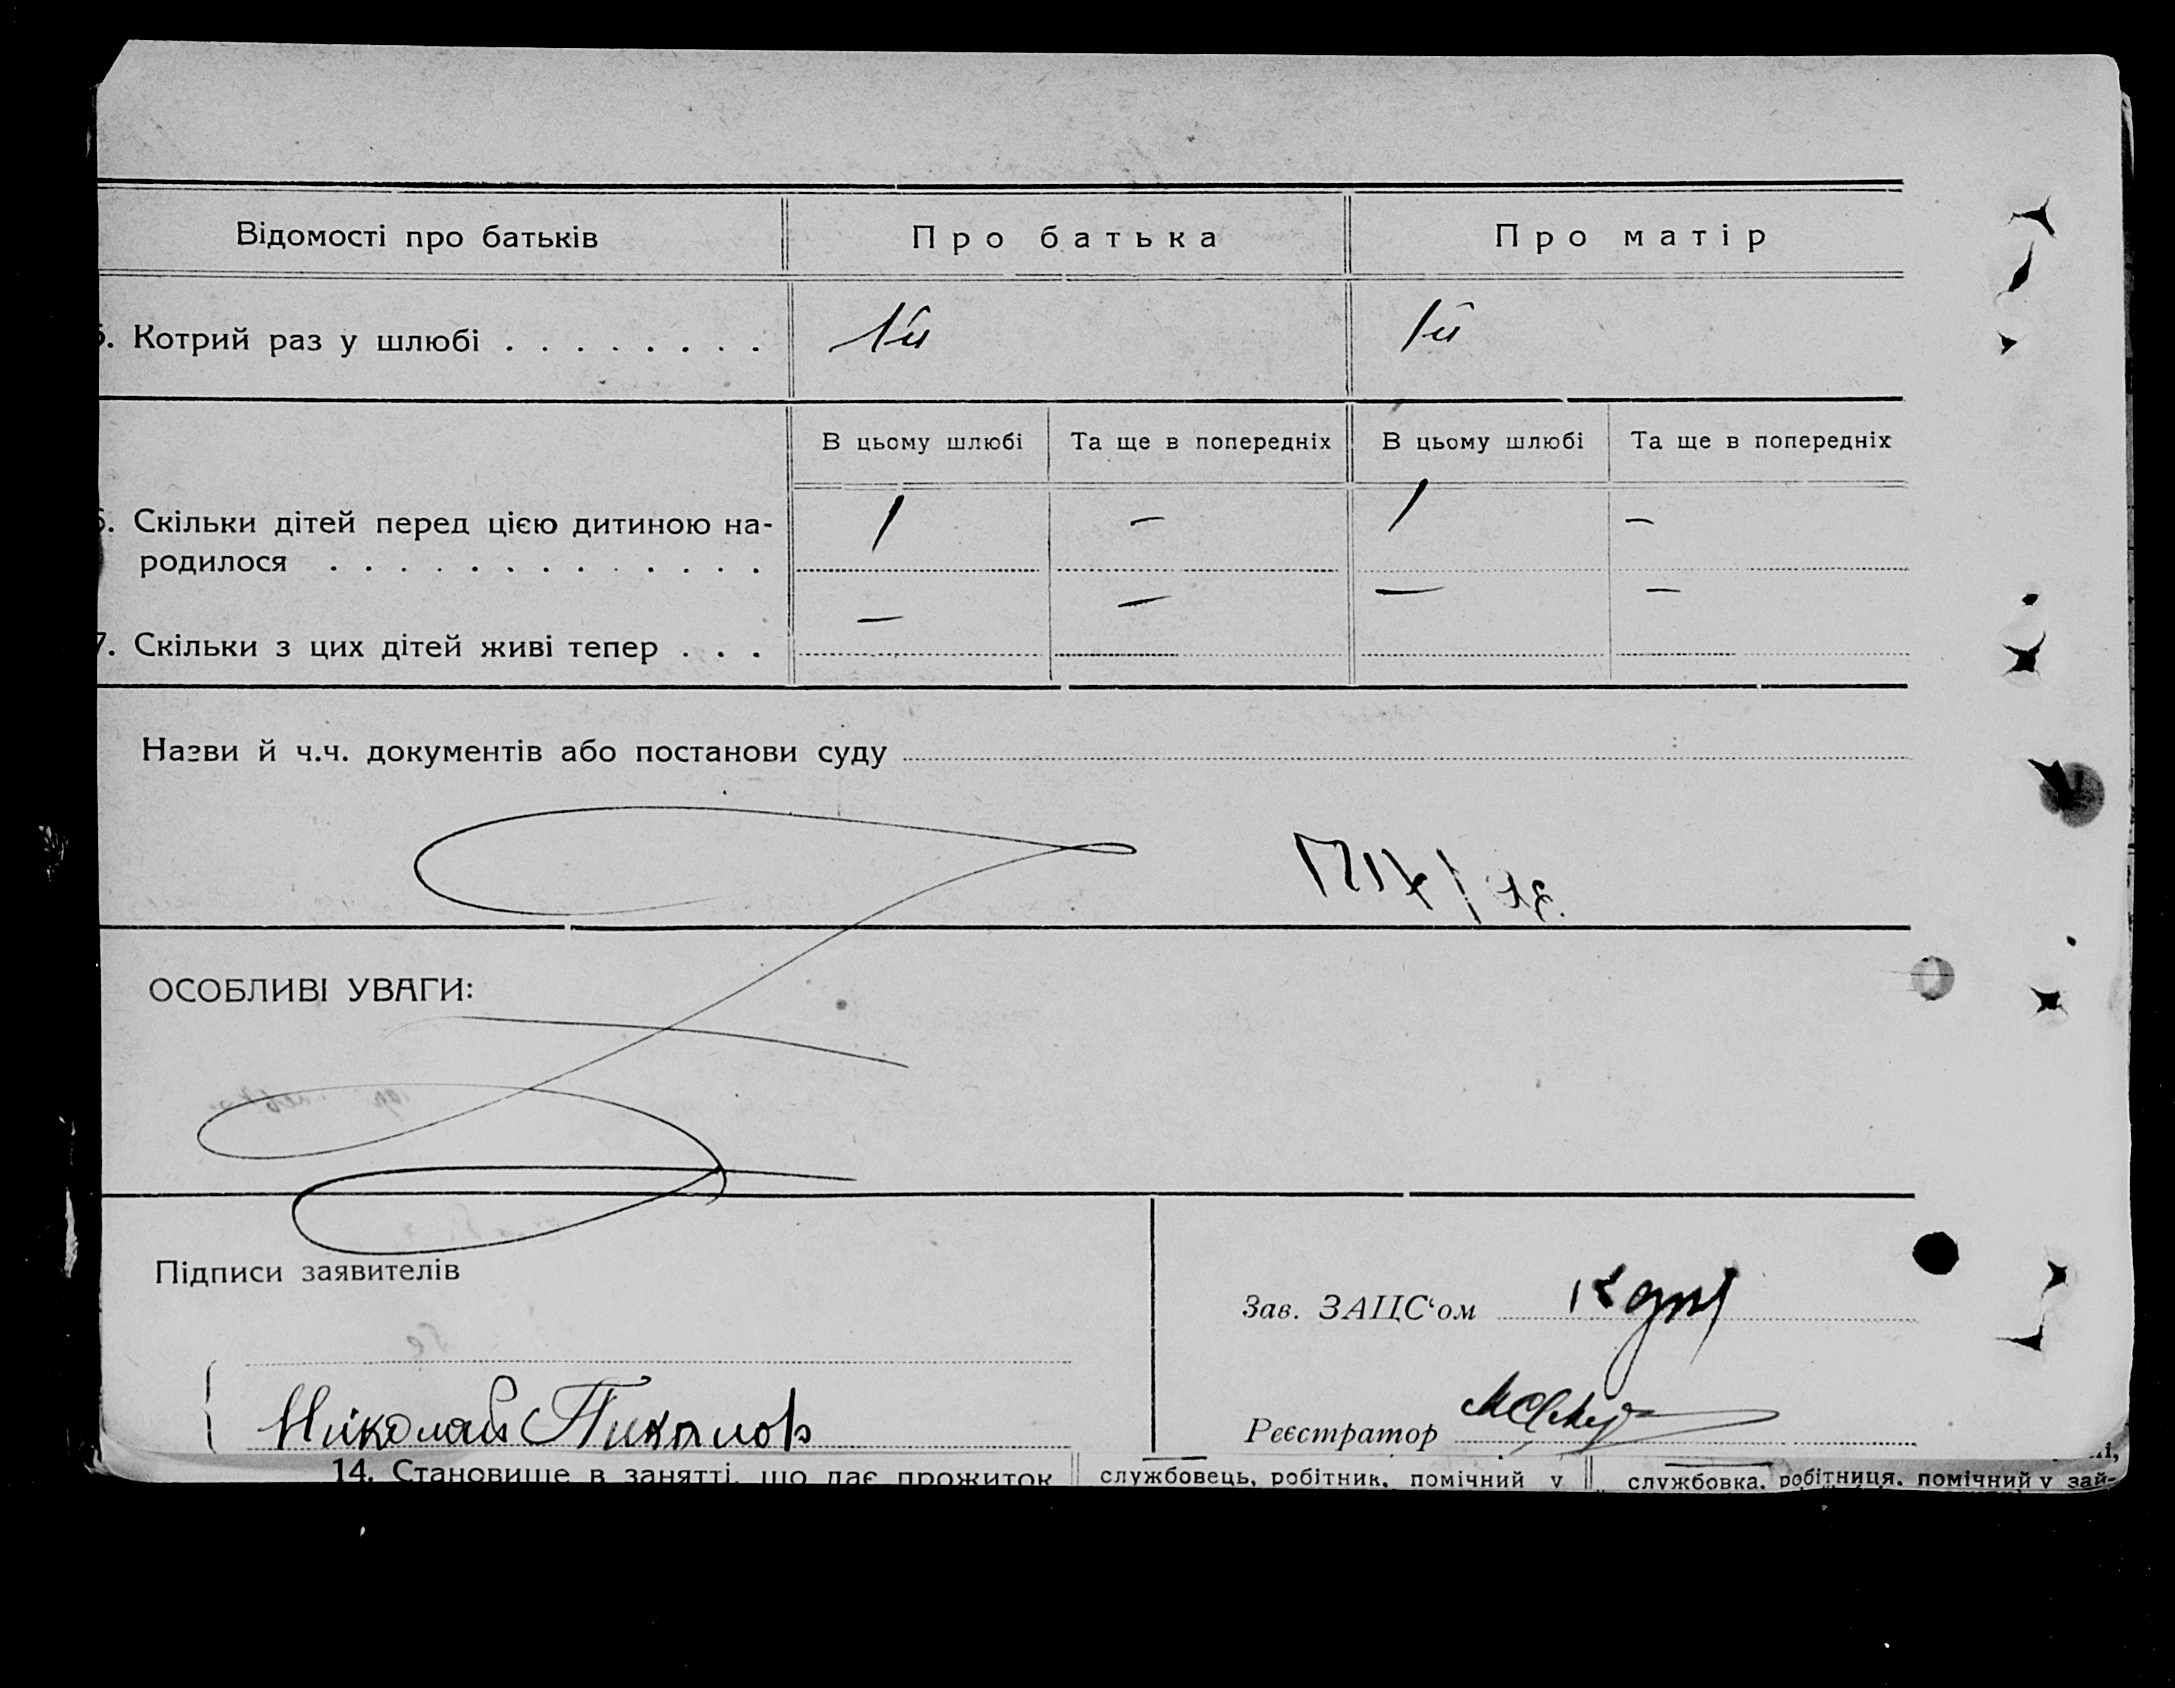 Відомості про батьків Про батька Про матір
5. Котрий раз у шлюбі . . . . . . . . 1й 1й
В цьому шлюбі Та ще в попередніх В цьому шлюбі Та ще в попередніх
6. Скільки дітей перед цією дитиною на-
родилося . . . . . . . . . . . . . 1 — 1 —
7. Скільки з цих дітей живі тепер . . . — — — —
Назви й ч.ч. документів або постанови суду
ОСОБЛИВІ УВАГИ:
Підписи заявителів
Зав. ЗАЦС‘ом
Николай
Реєстратор
14. Становище в занятті, що дає прожиток службовець, робітник, помічний у службовка, робітниця, помічний у зай-